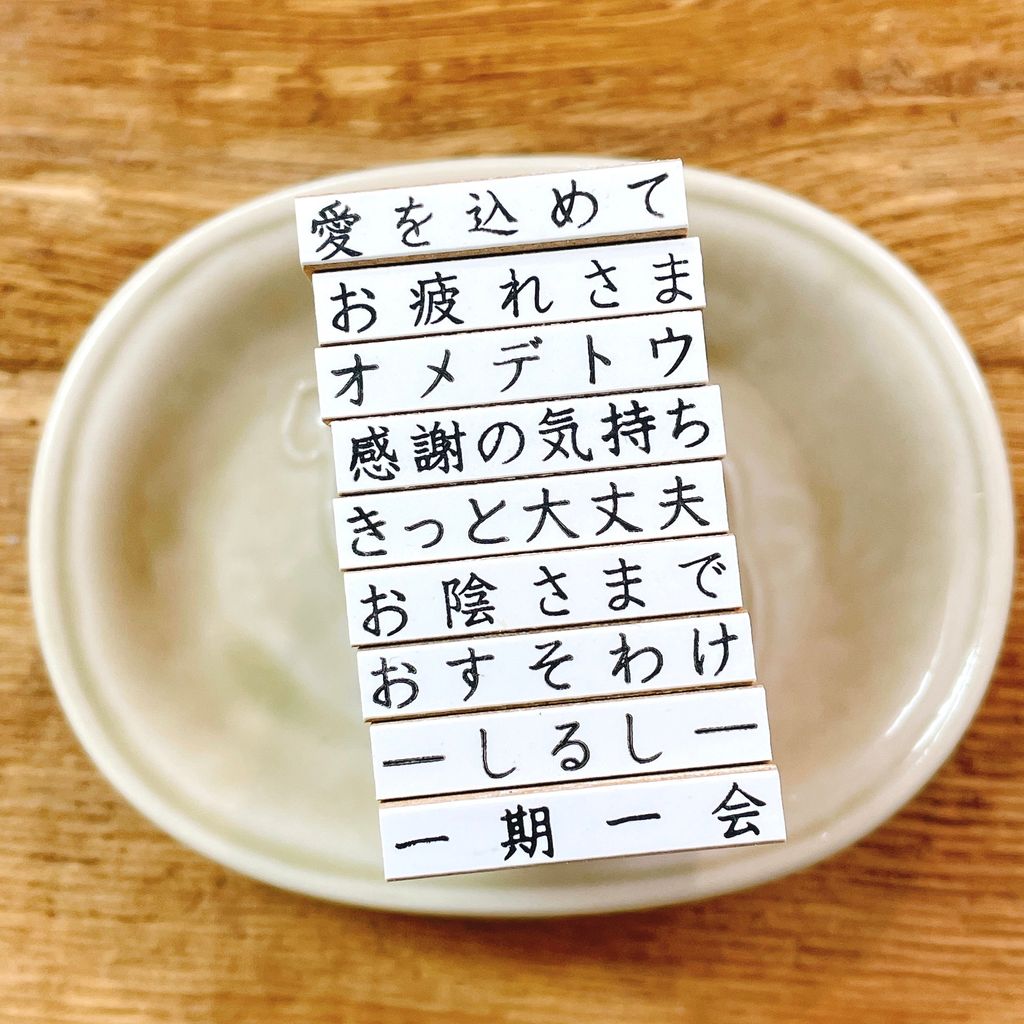 愛を込めて
お疲れさま
オメデトウ
感謝の気持ち
きっと大丈夫
お陰さまで
おすそわけ
―しるし―
一期一会